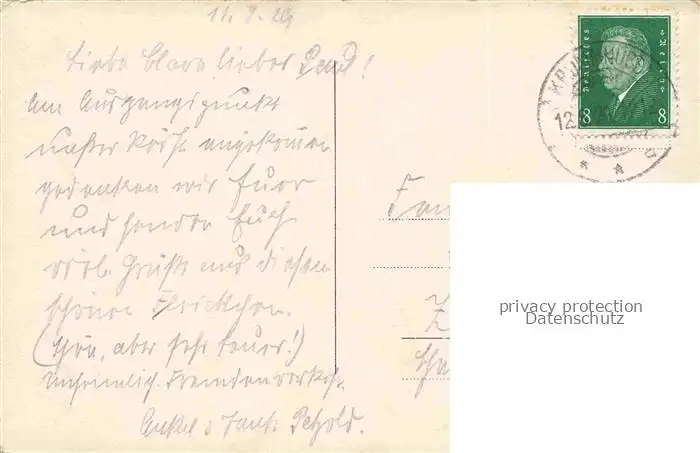 11. 9. 29
Liebe Clara, lieber Paul!
Am Ausgangspunkt
unserer angekommen
gedenken wir Euer
und senden Euch
viele Grüße aus diesem
schönen Fleckchen.
(Schön, aber sehr teuer!)
Unheimlich. Fremdenverkehr.
Onkel u Tante Petzold.
Deutsches Reich
8 8
12.
Fam
Z
privacy protection
Datenschutz